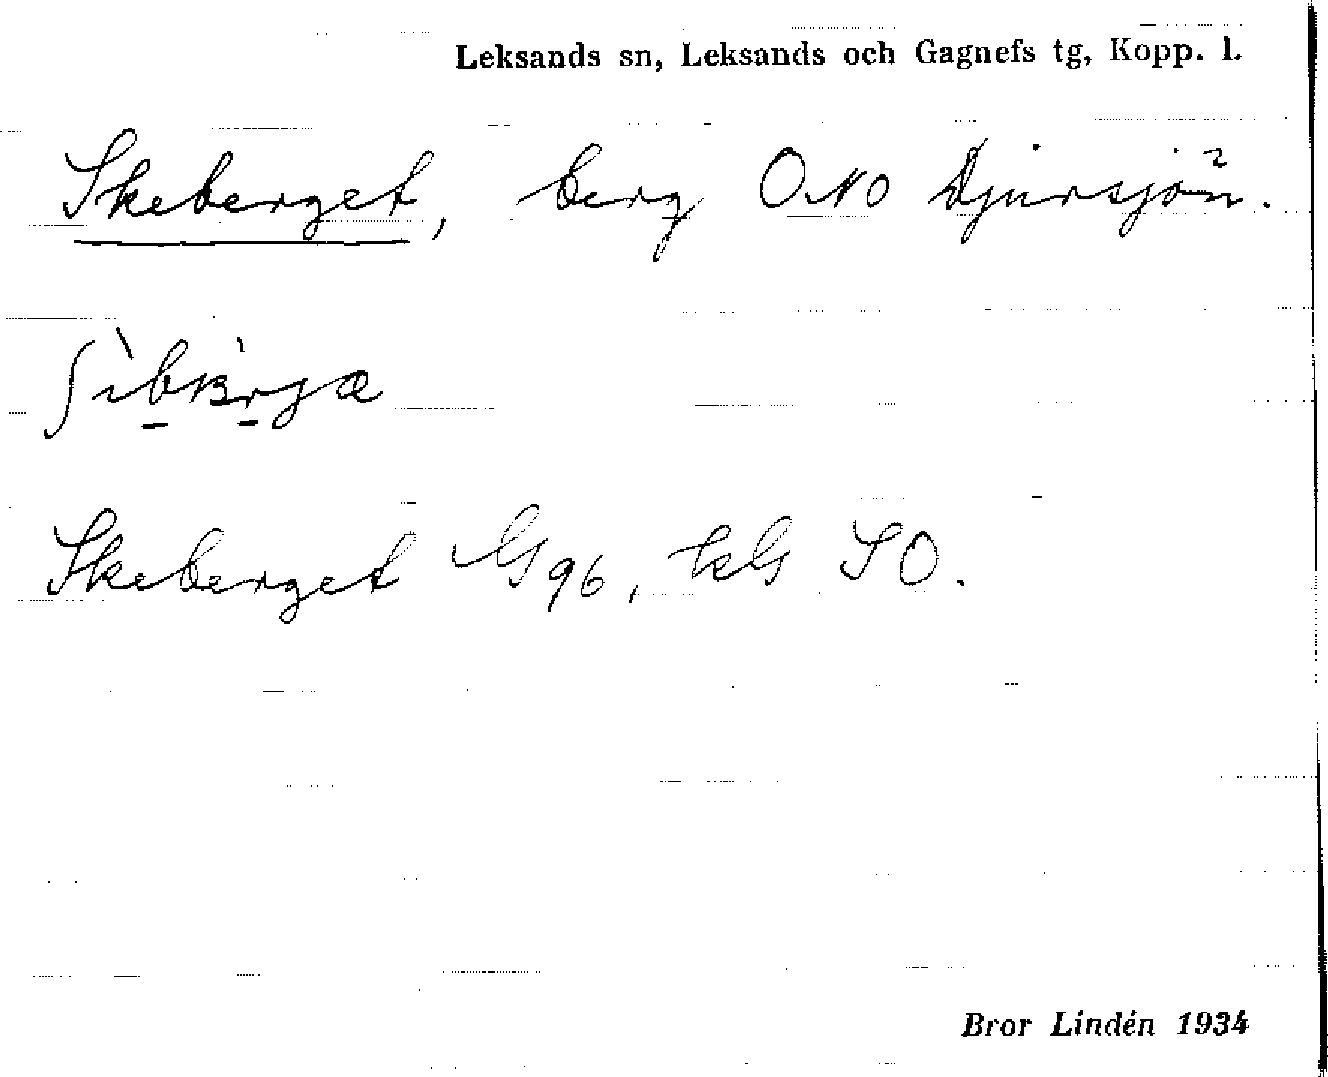 Leksands sn, Leksands och Gagnefs tg, Kopp. l.
Skeberget, berg ONO Djursjön.
Skeberget G96, kbl SO.
Bror Lindén 1934